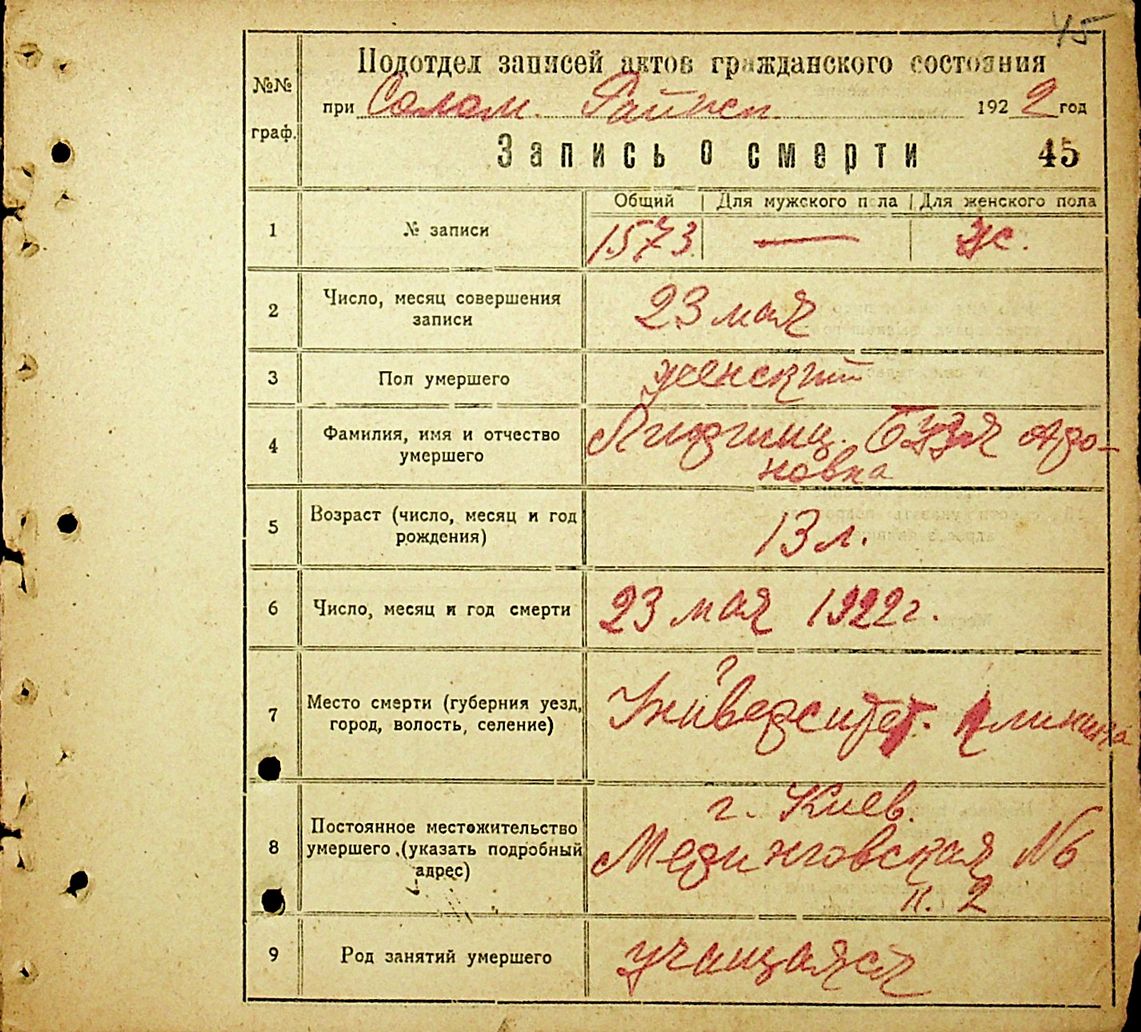 45
№№ граф.
Подотдел записей актов гражданского состояния
при Солом. Райисп. 1922 год
Запись о смерти 45
Общий | Для мужского пола | Для женского пола
1 № записи 1573 — ж.
2 Число, месяц совершения
записи
23 мая
3 Пол умершего женский
4 Фамилия, имя и отчество
умершего
Лифшиц. Бузя Аро-
новна
5 Возраст (число, месяц и год
рождения)
13 л.
6 Число, месяц и год смерти 23 мая 1922 г.
7 Место смерти (губерния уезд,
город, волость, селение)
Университет. клиника
8 Постоянное местожительство
умершего (указать подробный
адрес)
г. Киев.
№
п. 2
9 Род занятий умершего учащаяся